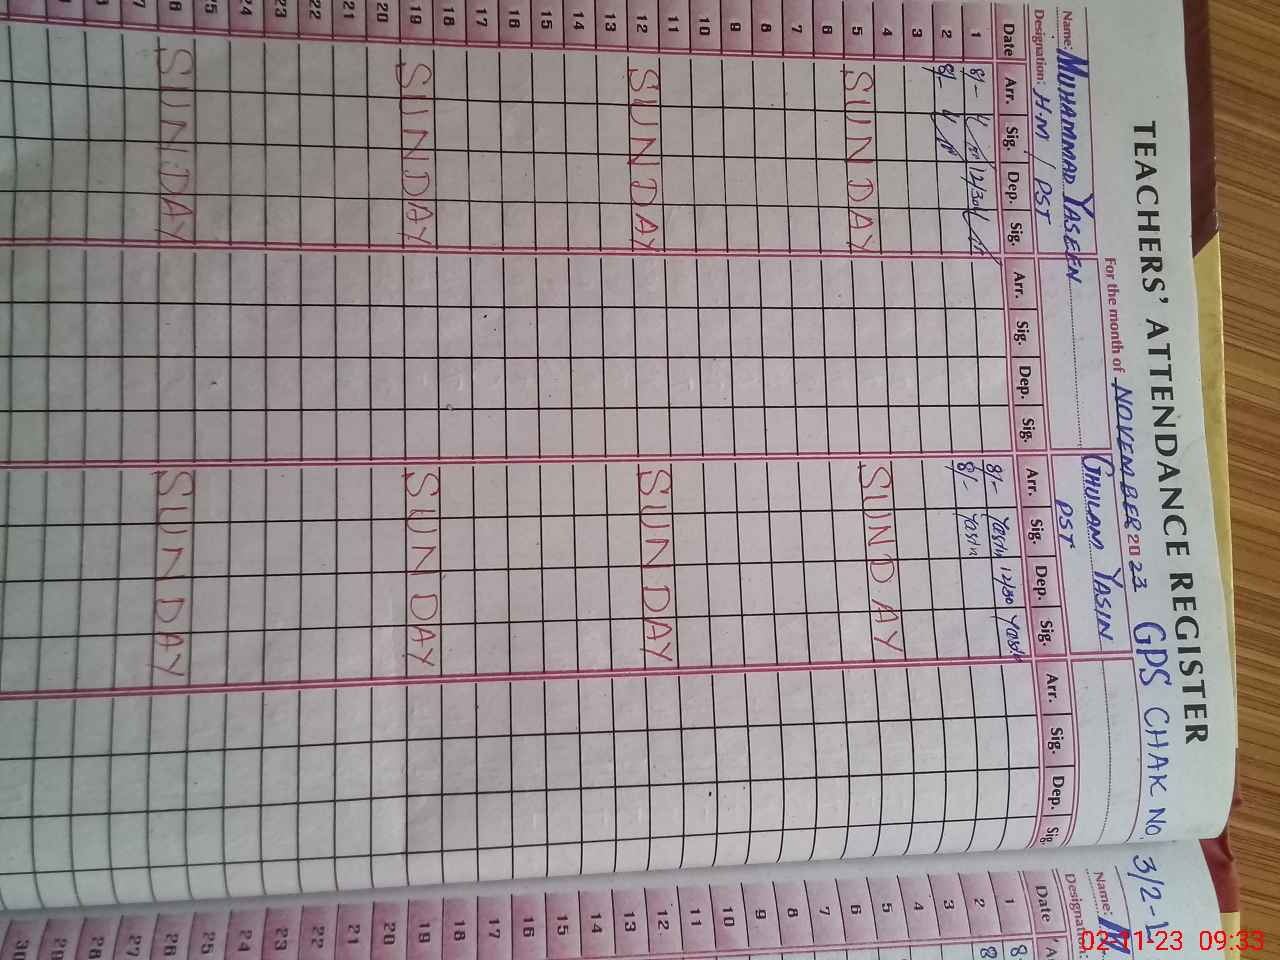 TEACHERS' ATTENDANCE REGISTER
For the month of NOVEMBER 2023 GPS CHAK NO. 3/2-L
Name: MUHAMMAD YASEEN GHULAM YASIN
Designation: H.M / PST PST
Date Arr. Sig. Dep. Sig. Arr. Sig. Dep. Sig. Arr. Sig. Dep. Sig. Arr. Sig. Dep. Sig.
1 8/- 12/30 8/- Yasin 12/30 Yasin
2 8/- 8/- Yasin
3
4
5 SUNDAY SUNDAY
6
7
8
9
10
11
12 SUNDAY SUNDAY
13
14
15
16
17
18
19 SUNDAY SUNDAY
20
21
22
23
24
25
26 SUNDAY SUNDAY
Name: M
Designation:
Date A
1 8
2 8
3
4
5
6
7
8
9
10
11
12
13
14
15
16
17
18
19
20
21
22
23
24
25
26
27
28
29
30
02-11-23 09:33